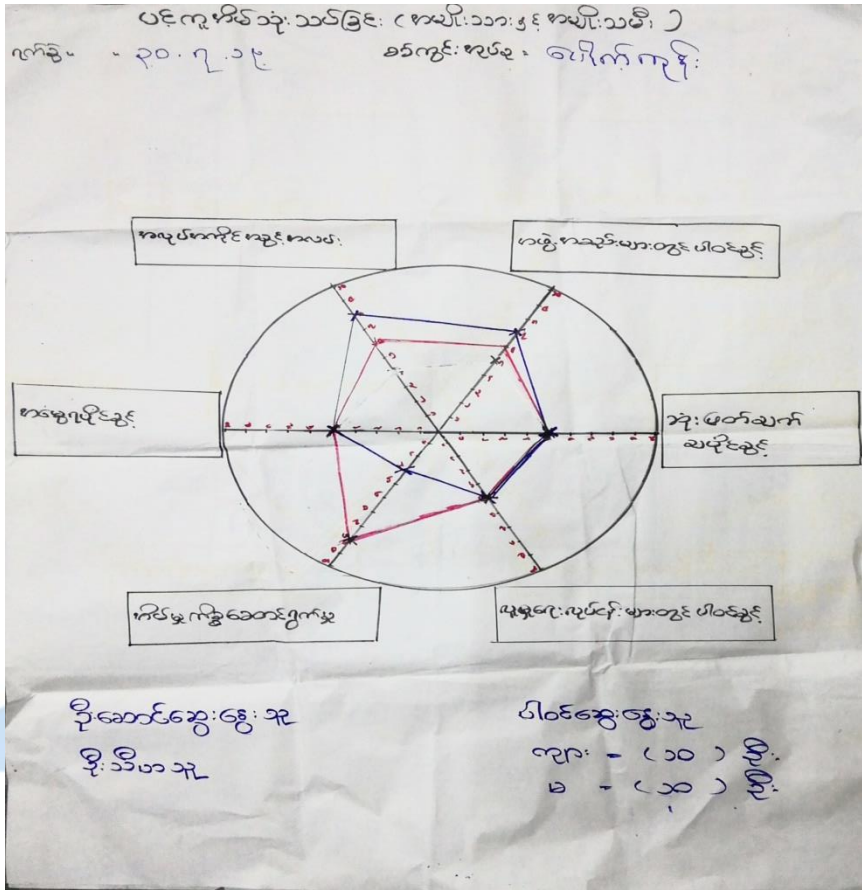 ပင့်ကူအိမ်သုံးသပ်ခြင်း (အမျိုးသားနှင့်အမျိုးသမီး)
ရက်စွဲ - ၃၀.၇.၁၉ စစ်ကွင်းအုပ်စု - ပေါက်ကုန်း
အလုပ်အကိုင်အခွင့်အလမ်း
အဖွဲ့အစည်းများတွင်ပါဝင်ခွင့်
အမွေရပိုင်ခွင့်
ဆုံးဖြတ်ချက်
ချပိုင်ခွင့်
အိမ်မှုကိစ္စဆောင်ရွက်မှု
လူမှုရေးလုပ်ငန်းများတွင်ပါဝင်ခွင့်
ဦးဆောင်ဆွေးနွေးသူ
ဦးသီဟသူ
ပါဝင်ဆွေးနွေးသူ
ကျား - (၁၀) ဦး
မ - (၁၃) ဦး